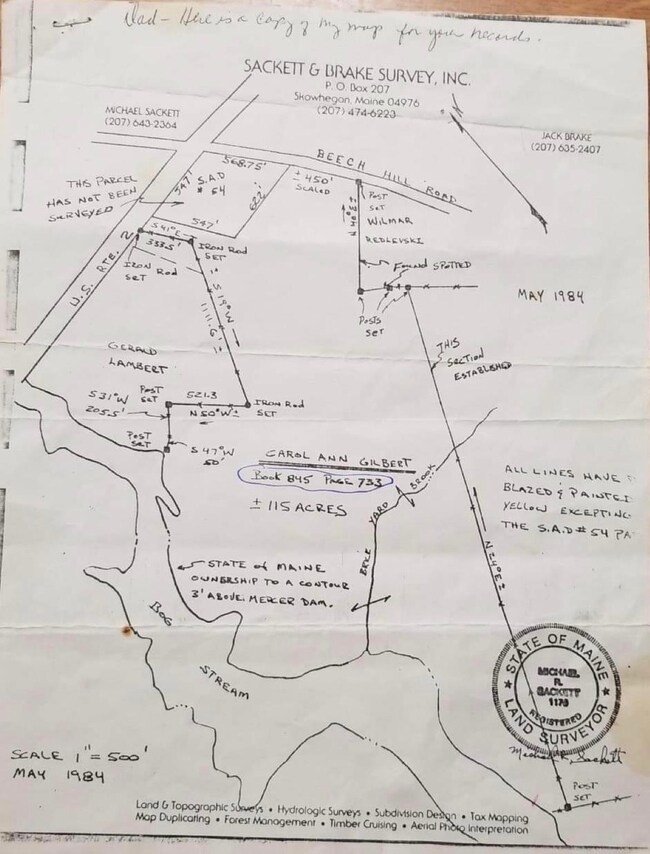 Dad - Here is a copy of my map for your records.
SACKETT & BRAKE SURVEY, INC.
P.O. Box 207
Skowhegan, Maine 04976
(207) 474-6223
MICHAEL SACKETT
(207) 643-2364
JACK BRAKE
(207) 635-2407
BEECH HILL ROAD
THIS PARCEL
HAS NOT BEEN
SURVEYED
568.75'
547'
S.A.D
# 54
622'
± 450'
SCALED
547'
S41°E
333.5'
IRON ROD
SET
IRON ROD
SET
U.S. RTE. 2
POST
SET
WILMAR
FOUND SPOTTED
POSTS
SET
MAY 1984
S19°W
1111.6'
THIS
SECTION
ESTABLISHED
GERALD
LAMBERT
S31°W
205.5'
POST
SET
521.3
N50°W±
IRON ROD
SET
POST
SET
S47°W
50'
CAROL ANN GILBERT
Book 845 PAGE 733
± 115 ACRES
YARD BROOK
ALL LINES HAVE
BLAZED & PAINTED
YELLOW EXCEPTING
THE S.A.D # 54 PA
STATE of MAINE
OWNERSHIP TO A CONTOUR
3' ABOVE MERCER DAM.
BOG
STREAM
STATE OF MAINE
MICHAEL
R.
SACKETT
1175
REGISTERED
LAND SURVEYOR
Michael R. Sackett
SCALE 1" = 500'
MAY 1984
POST
SET
Land & Topographic Surveys • Hydrologic Surveys • Subdivision Design • Tax Mapping
Map Duplicating • Forest Management • Timber Cruising • Aerial Photo Interpretation